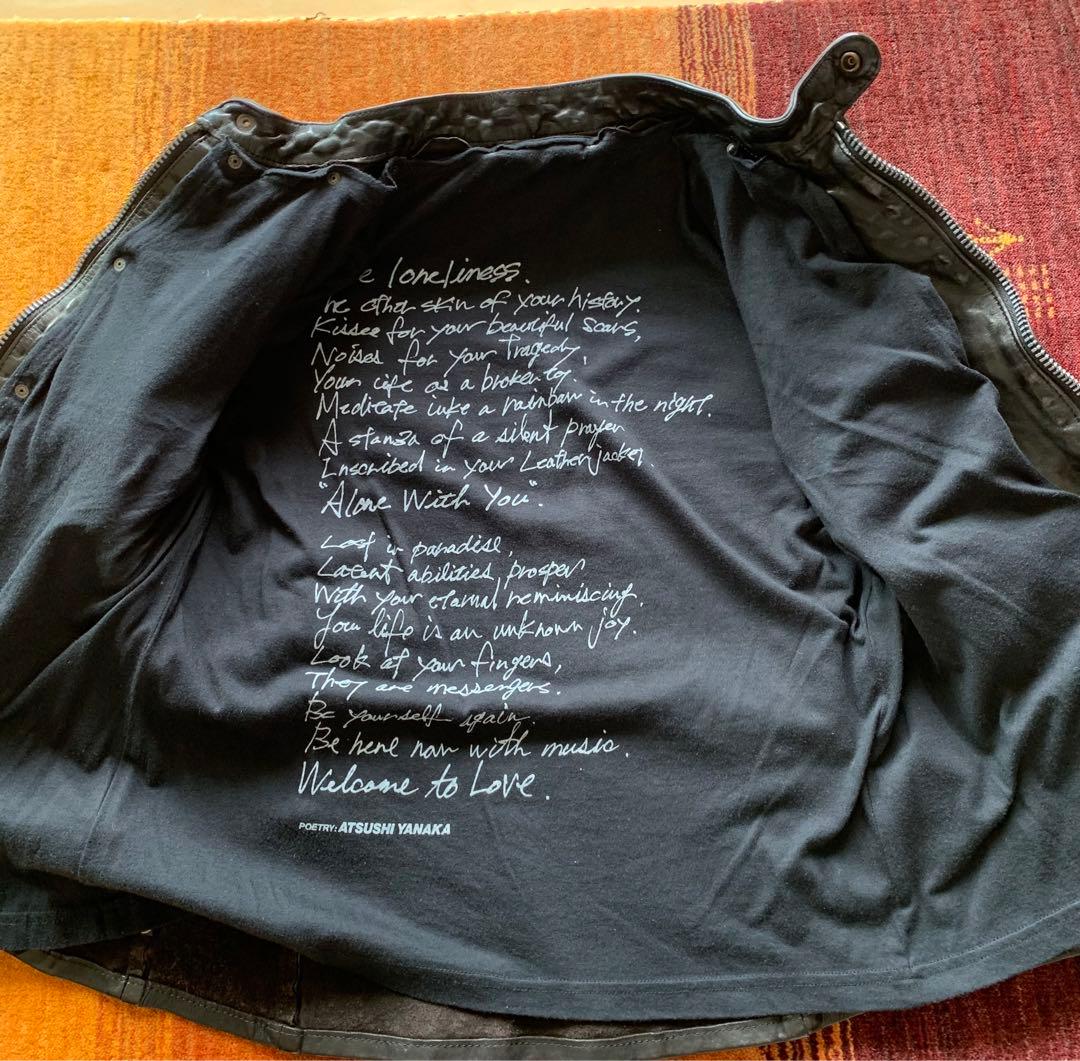 e loneliness.
he other skin of your history.
Kisses for your beautiful scars,
Noises for your Tragedy,
Your life as a broken toy.
Meditate like a rainbow in the night.
A stanza of a silent prayer
Inscribed in your Leather jacket.
"Alone With You".
Lost in paradise,
Latent abilities prosper
With your eternal reminiscing.
Your life is an unknown joy.
Look at your fingers,
They are messengers.
Be yourself again.
Be here now with music.
Welcome to Love.
POETRY: ATSUSHI YANAKA